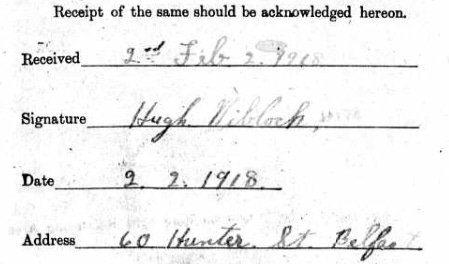 Receipt of the same should be acknowledged hereon.
Received 2nd Feb. 2. 1918
Signature Hugh Niblock,
Date 2. 2. 1918.
Address 60 Hunter. St. Belfast